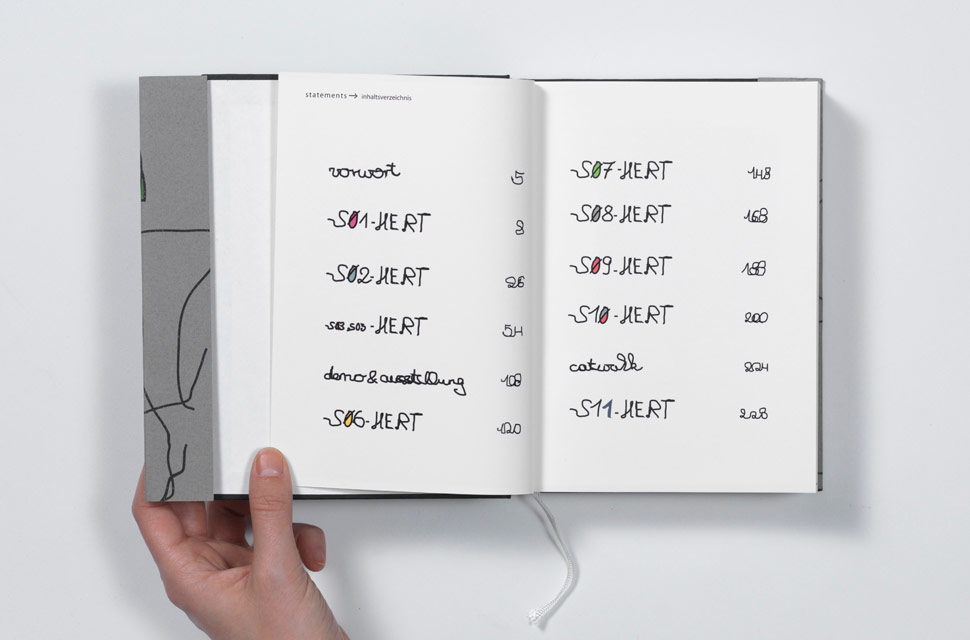 statements → inhaltsverzeichnis
vorwort 5
S01-HERT 8
S02-HERT 26
S03,S03-HERT 54
demo & ausstellung 108
S06-HERT 120
S07-HERT 148
S08-HERT 168
S09-HERT 188
S10-HERT 200
catwalk 224
S11-HERT 228